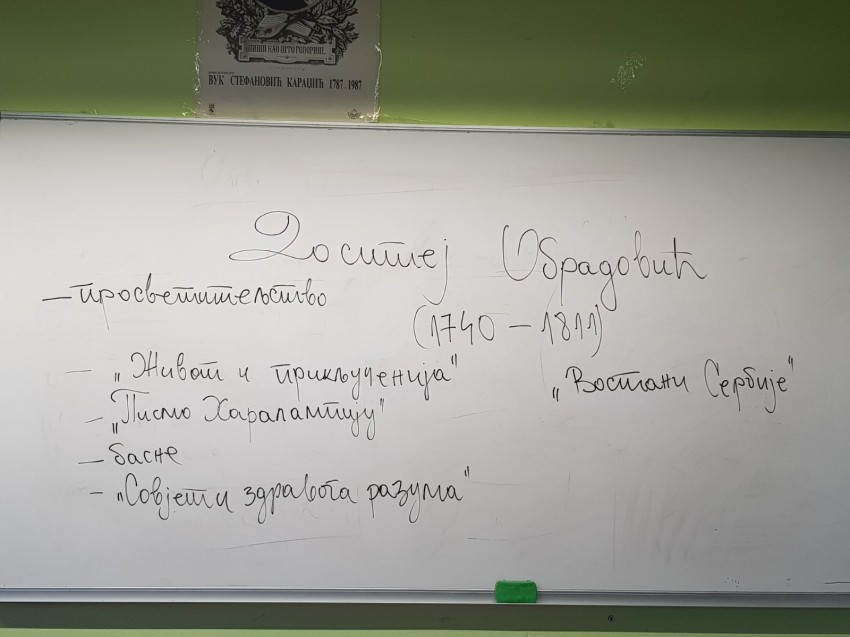 ПИШИ КАО ШТО ГОВОРИШ.
ВУК СТЕФАНОВИЋ КАРАЏИЋ 1787 . 1987
Доситеј Обрадовић
– просветитељство
(1740 – 1811)
– „Живот и прикљученија"
„Востани Сербије"
– „Писмо Харалампију"
– басне
– „Совјети здравога разума"